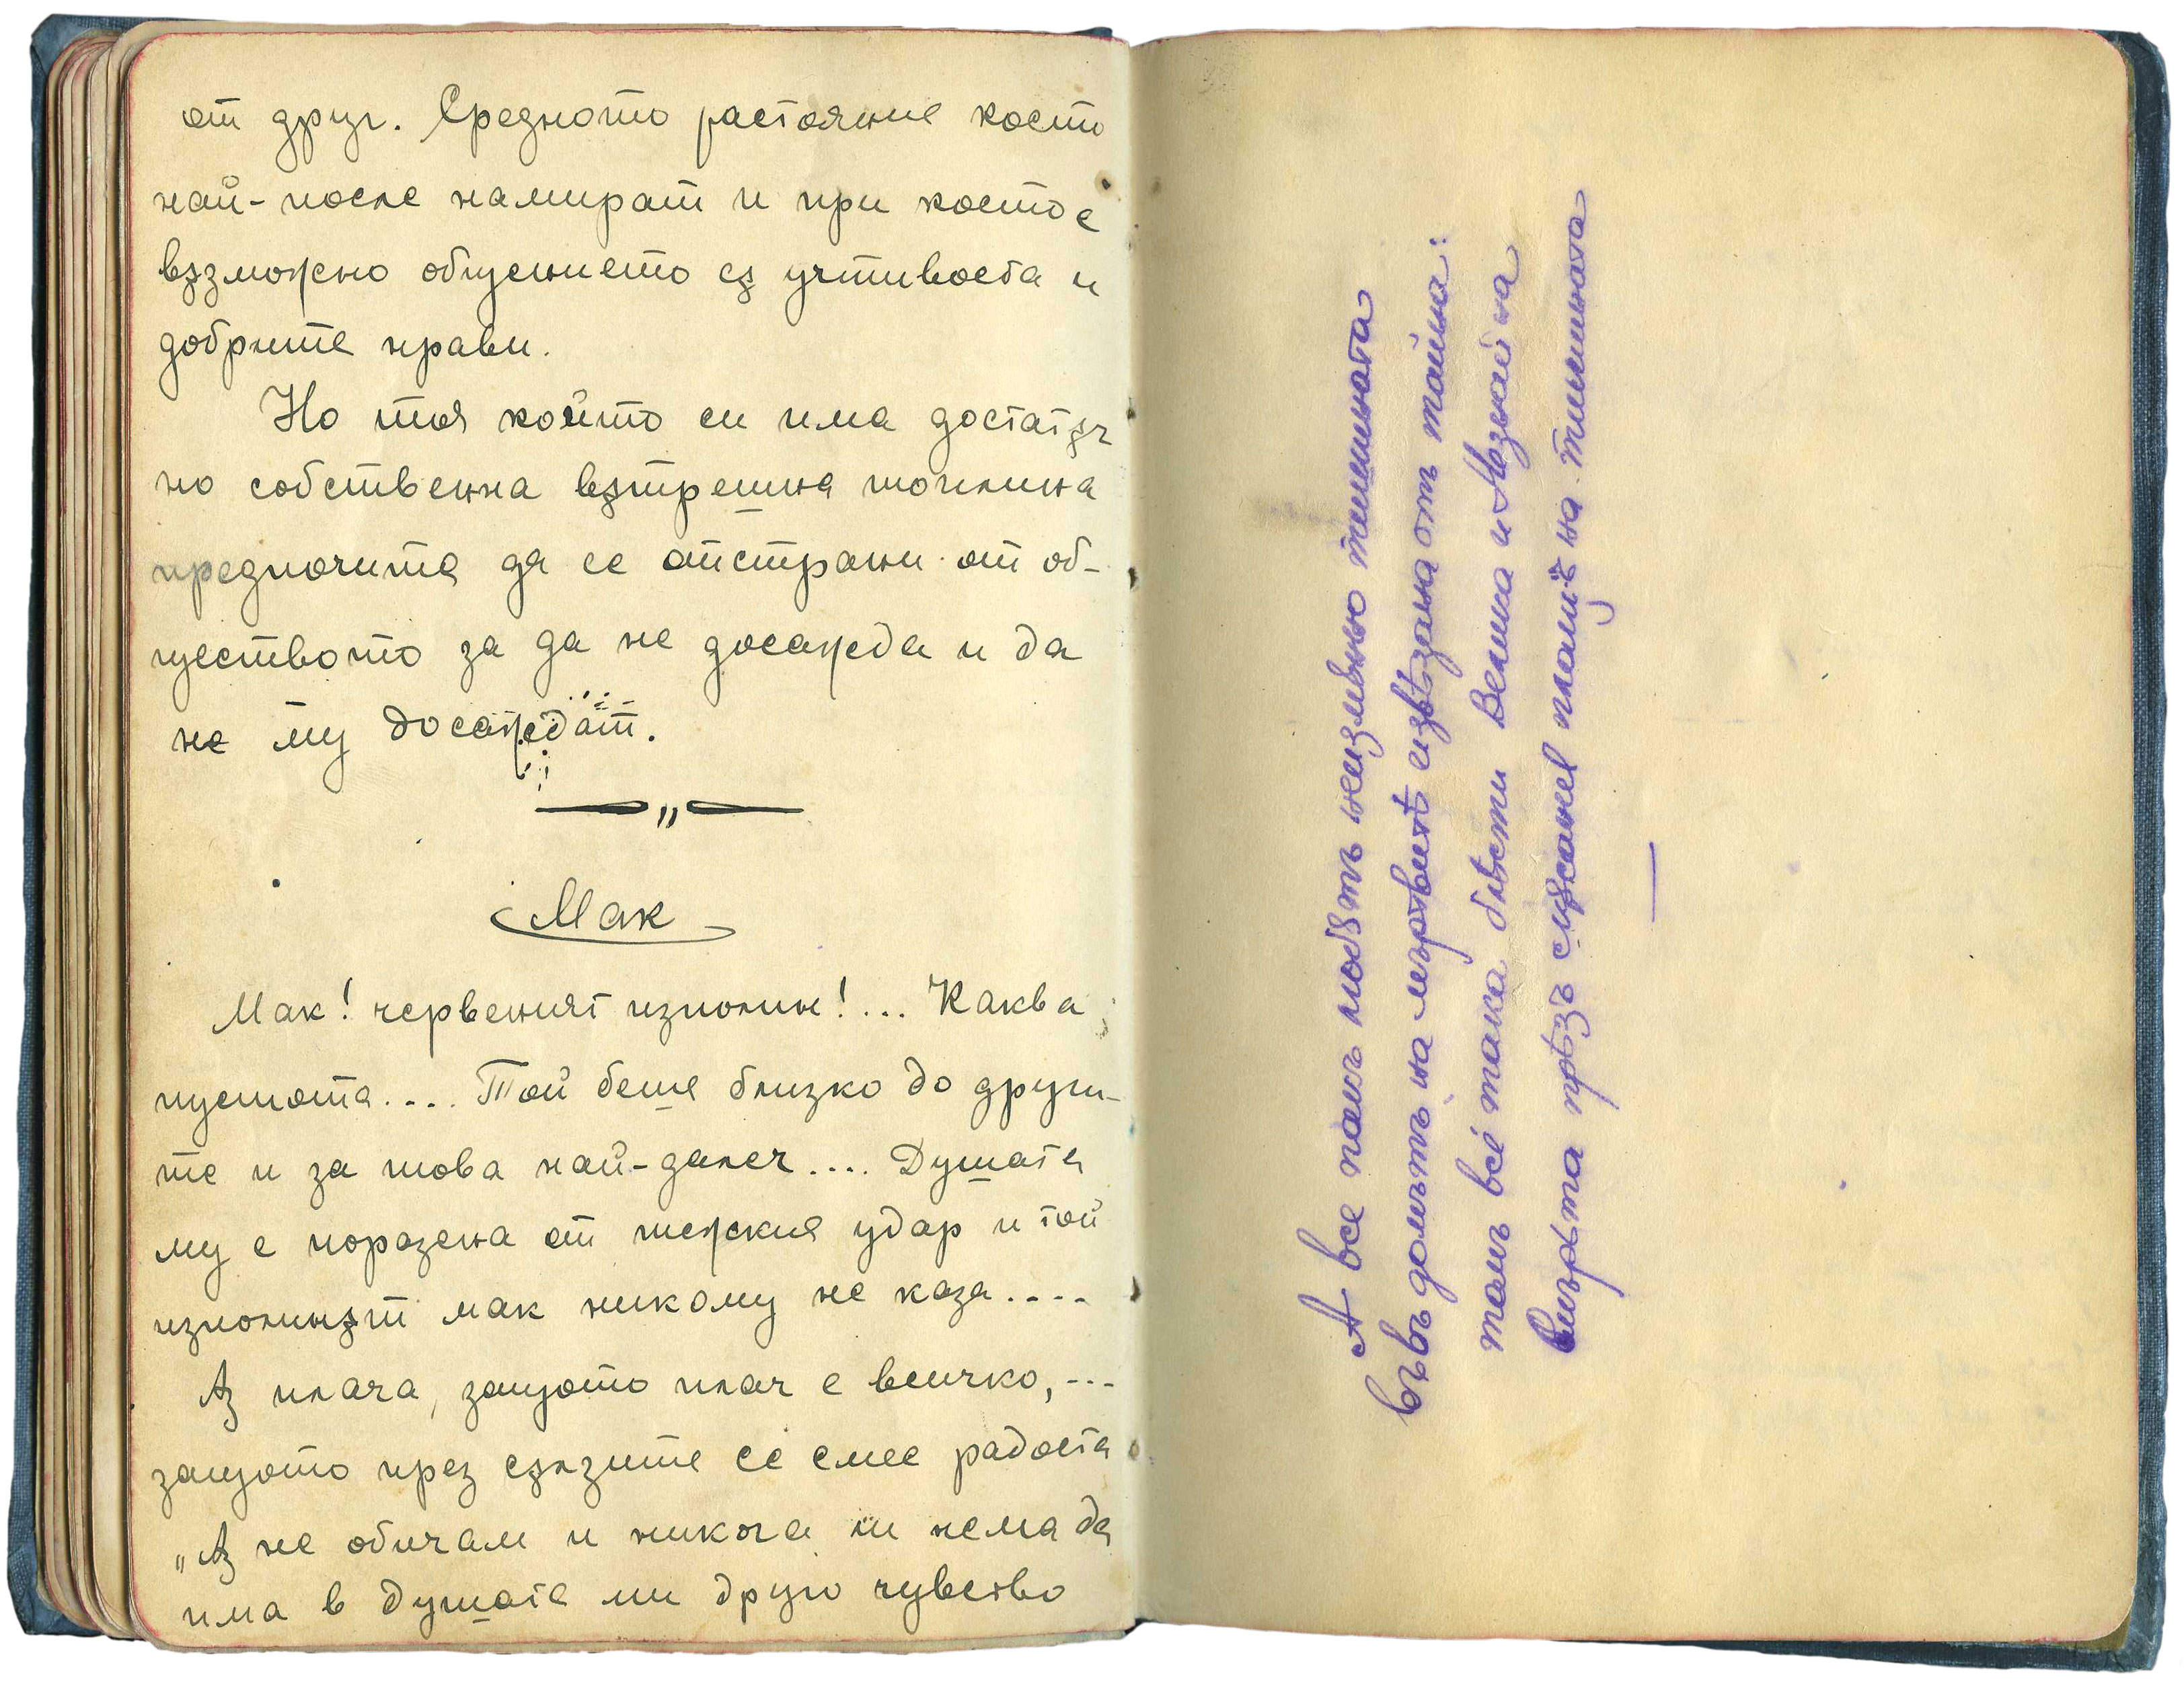 от друг. Средното растояние коѥто
най-после намират и при коѥто е
вѫзможно общението сѫ учтивоста и
добрите нрави.
Но тоя който си има достатѫч
но собственна вѫтрешна топлина
предпочита да се отстрани от об-
ществото за да не досажда и да
не му досаждат.
Мак
Мак! червеният изполин!... Каква
пустота.... Той беше близко до други-
те и за това най-далеч.... Душата
му е поразена от тежкия удар и той
изполинѫт мак никому не каза....
Аз плача, защото плач е всичко,...
защото през сѫлзите се смее радоста
„Аз не обичам и никога ни нема да
има в душата ми друго чувство
А все пакъ любѫтъ неизмѣнно тишината
въвъ домътъ на мъртвитѣ извѣзана отъ тайна:
тамъ все така блѣсти Велика и Незнайна
вихрѫта прѣзъ смѫсане пламѣ на тишината